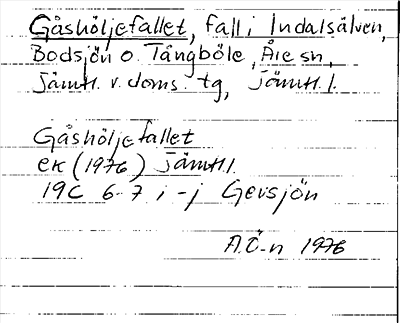 Gåshöljefallet, fall i Indalsälven,
Bodsjön o. Tångböle, Åre sn,
Jämtl. v. doms. tg, Jämtl. l.
Gåshöljefallet
ek (1976) Jämtl. l.
19C 6-7 i-j Gevsjön
A.Ö-n 1976